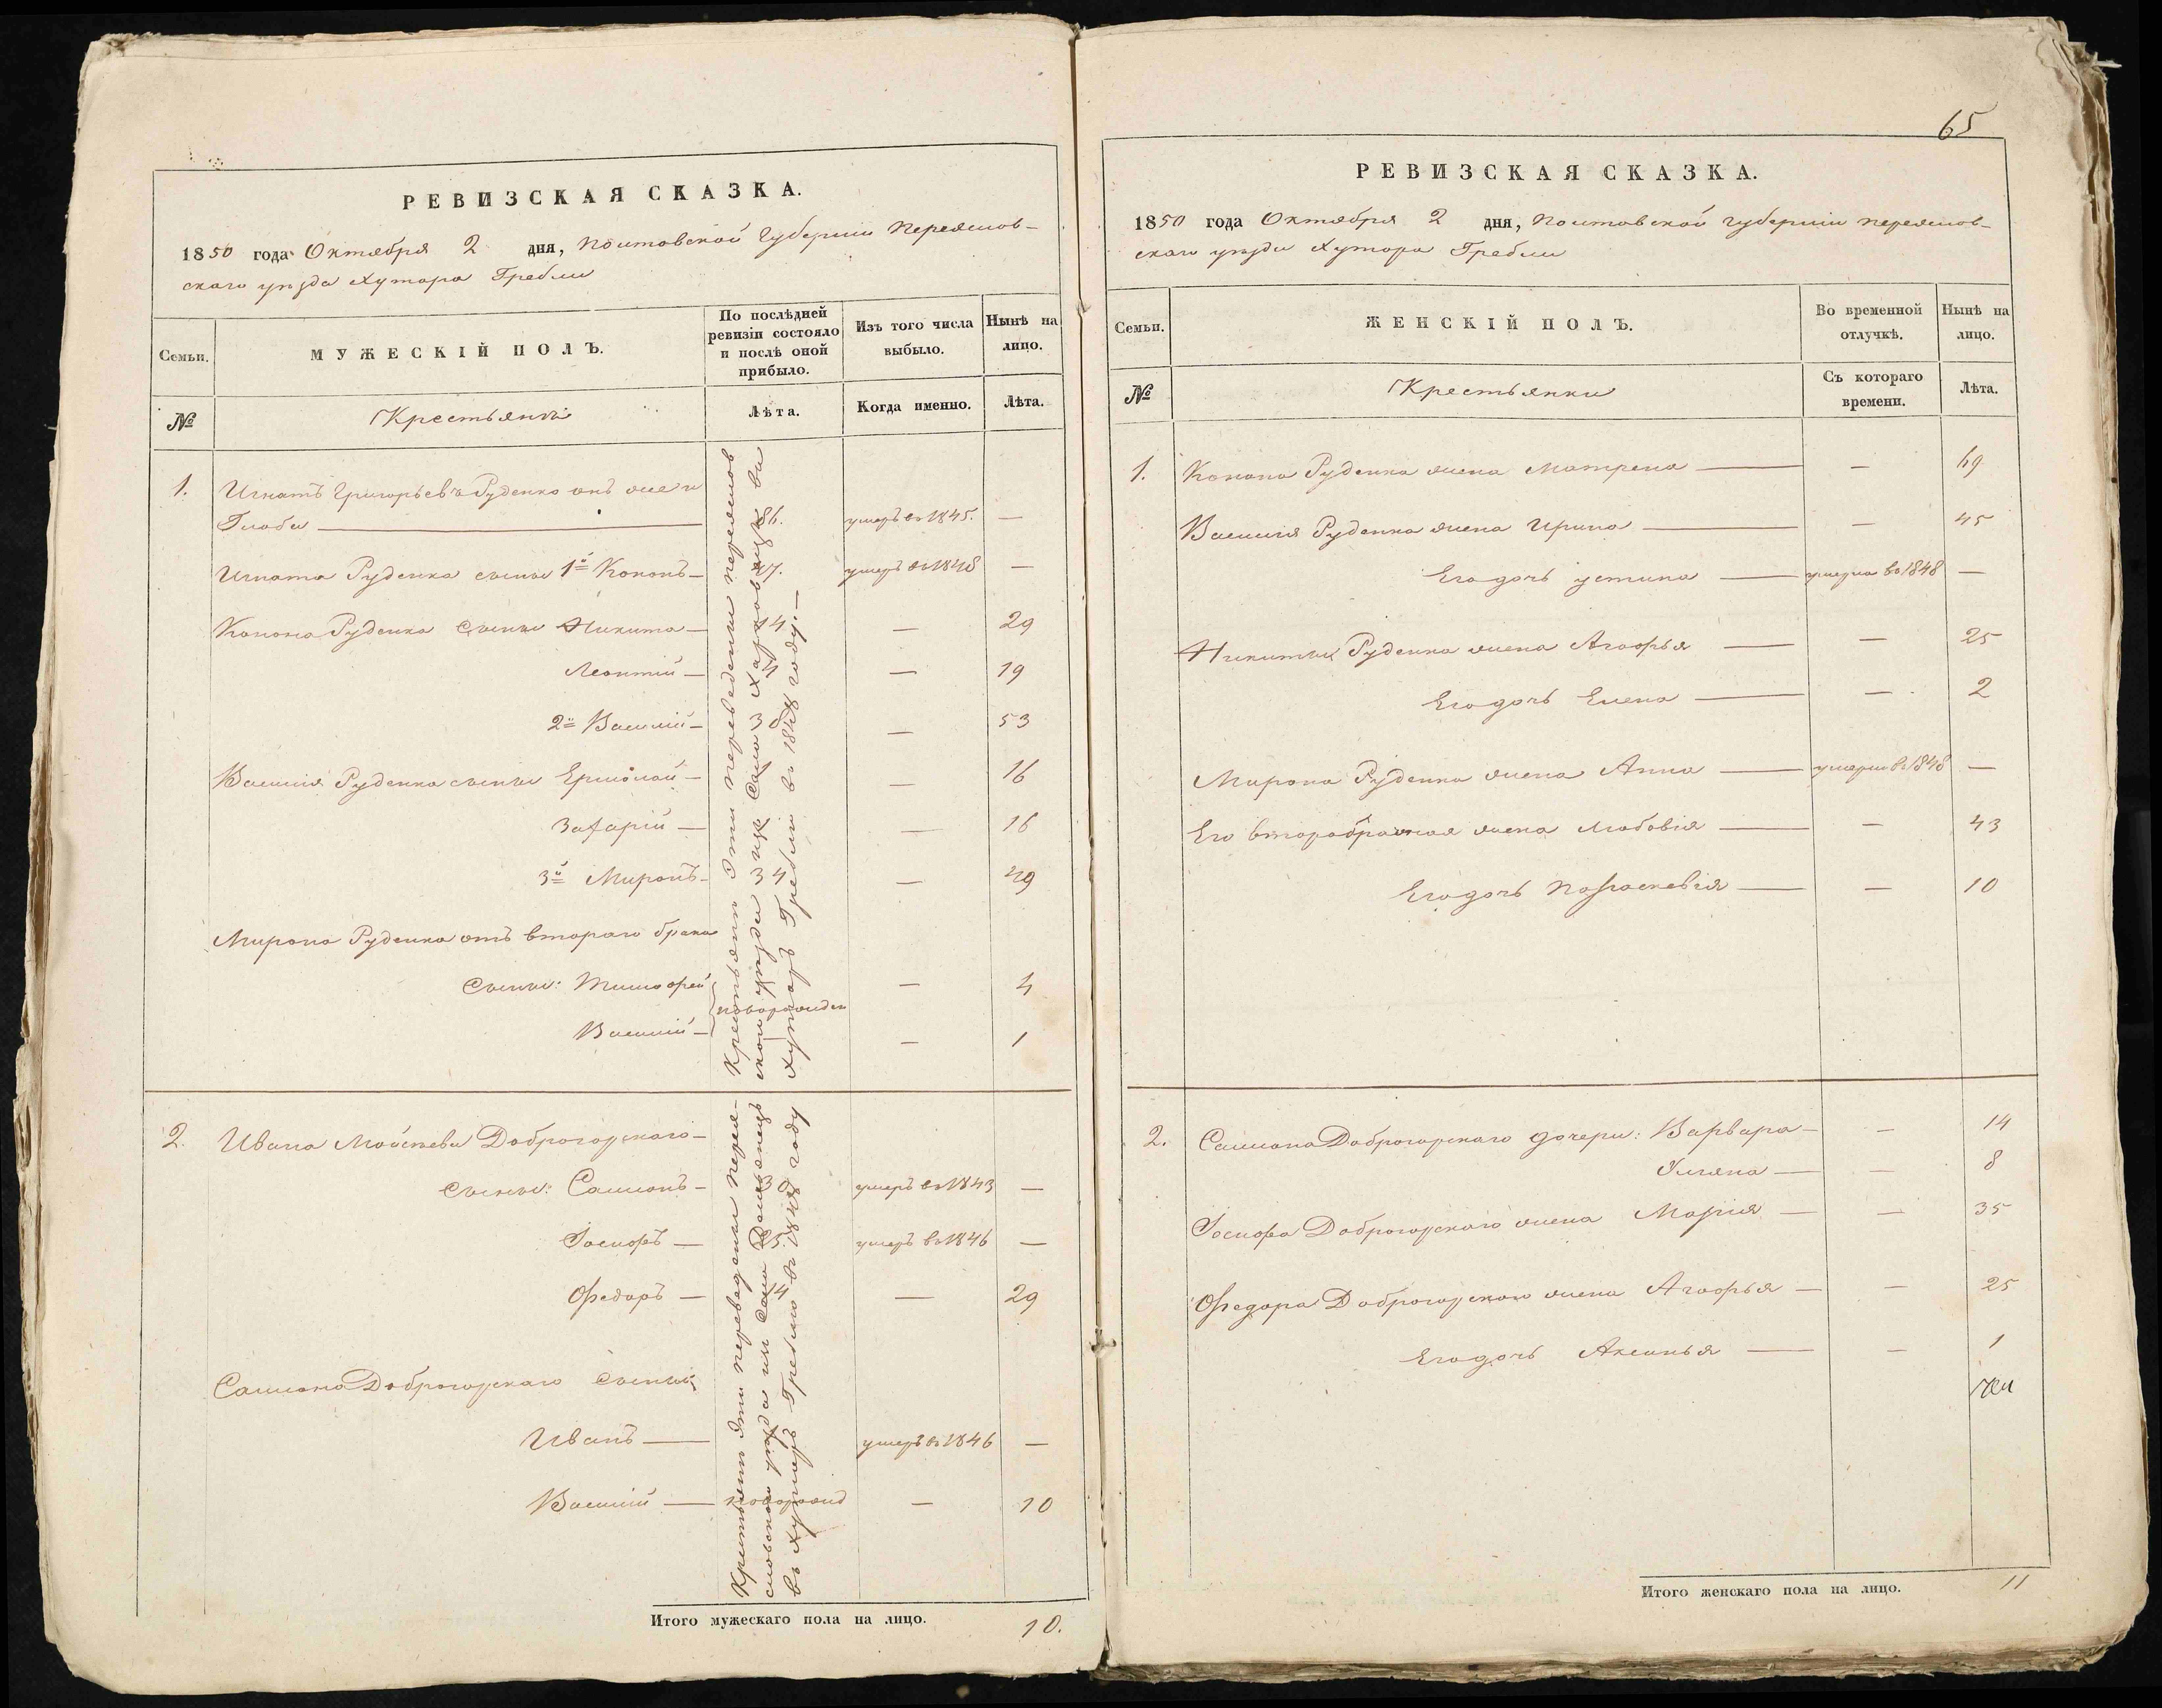 РЕВИЗСКАЯ СКАЗКА.
1850 года Октября 2 дня, Полтавской Губернии Переяслов-
скаго уѣзда Хутора Гребли
Семьи.
МУЖЕСКІЙ ПОЛЪ.
По послѣдней ревизіи состояло и послѣ оной прибыло.
Изъ того числа выбыло.
Нынѣ на лицо.
№
Крестьяне
Лѣта.
Когда именно.
Лѣта.
1. Игнатъ Григорьевъ Руденко онъ же и
Глоба — 86. умеръ въ 1845. —
Игната Руденка сыны 1й Кононъ — 47. умеръ въ 1848 —
Конона Руденка Сыны Никита — 14 — 29
Леонтій — 4 — 19
2й Василій — 38 — 53
Василія Руденка сыны Ермолай — — 16
Захарій — — 16
3й Миронъ — 34 — 49
Мирона Руденка отъ втораго брака
Сыны: Тимофей — 4
новорожден
Василій — — 1
Крестьяне эти переведены переяслов
скаго уѣзда изъ Села Харьковецъ въ
Хуторъ Греблю въ 1848 году. —
2. Ивана Моисѣева Доброгорскаго —
Сыны: Самсонъ — 30 умеръ въ 1843 —
Іосифъ — 25 умеръ въ 1846 —
Федоръ — 14 — 29
Самсона Доброгорскаго Сыны;
Иванъ — умеръ въ 1846 —
Василій — новорожд — 10
Крестьяне эти переведены перея-
словскаго уѣзда изъ Села
въ Хуторъ Греблю въ 1848 году
Итого мужескаго пола на лицо. 10.
65
РЕВИЗСКАЯ СКАЗКА.
1850 года Октября 2 дня, Полтавской Губерніи Переяслов-
скаго уѣзда Хутора Гребли
Семьи.
ЖЕНСКІЙ ПОЛЪ.
Во временной отлучкѣ.
Нынѣ на лицо.
№
Крестьянки
Съ котораго времени.
Лѣта.
1. Конона Руденка жена Матрена — — 69
Василія Руденка жена Ирина — — 45
Его дочь Устина — умерла въ 1848 —
Никиты Руденка жена Агафья — — 25
Его дочь Елена — — 2
Мирона Руденка жена Анна — умерла въ 1848 —
Его второбрачная жена Любовія — — 43
Его дочь Параскевія — — 10
2. Самсона Доброгорскаго дочери: Варвара — — 14
Ульяна — — 8
Іосифа Доброгорскаго жена Марія — — 35
Федора Доброгорскаго жена Агафья — — 25
Его дочь Аксинья — — 1
Итого женскаго пола на лицо. 11